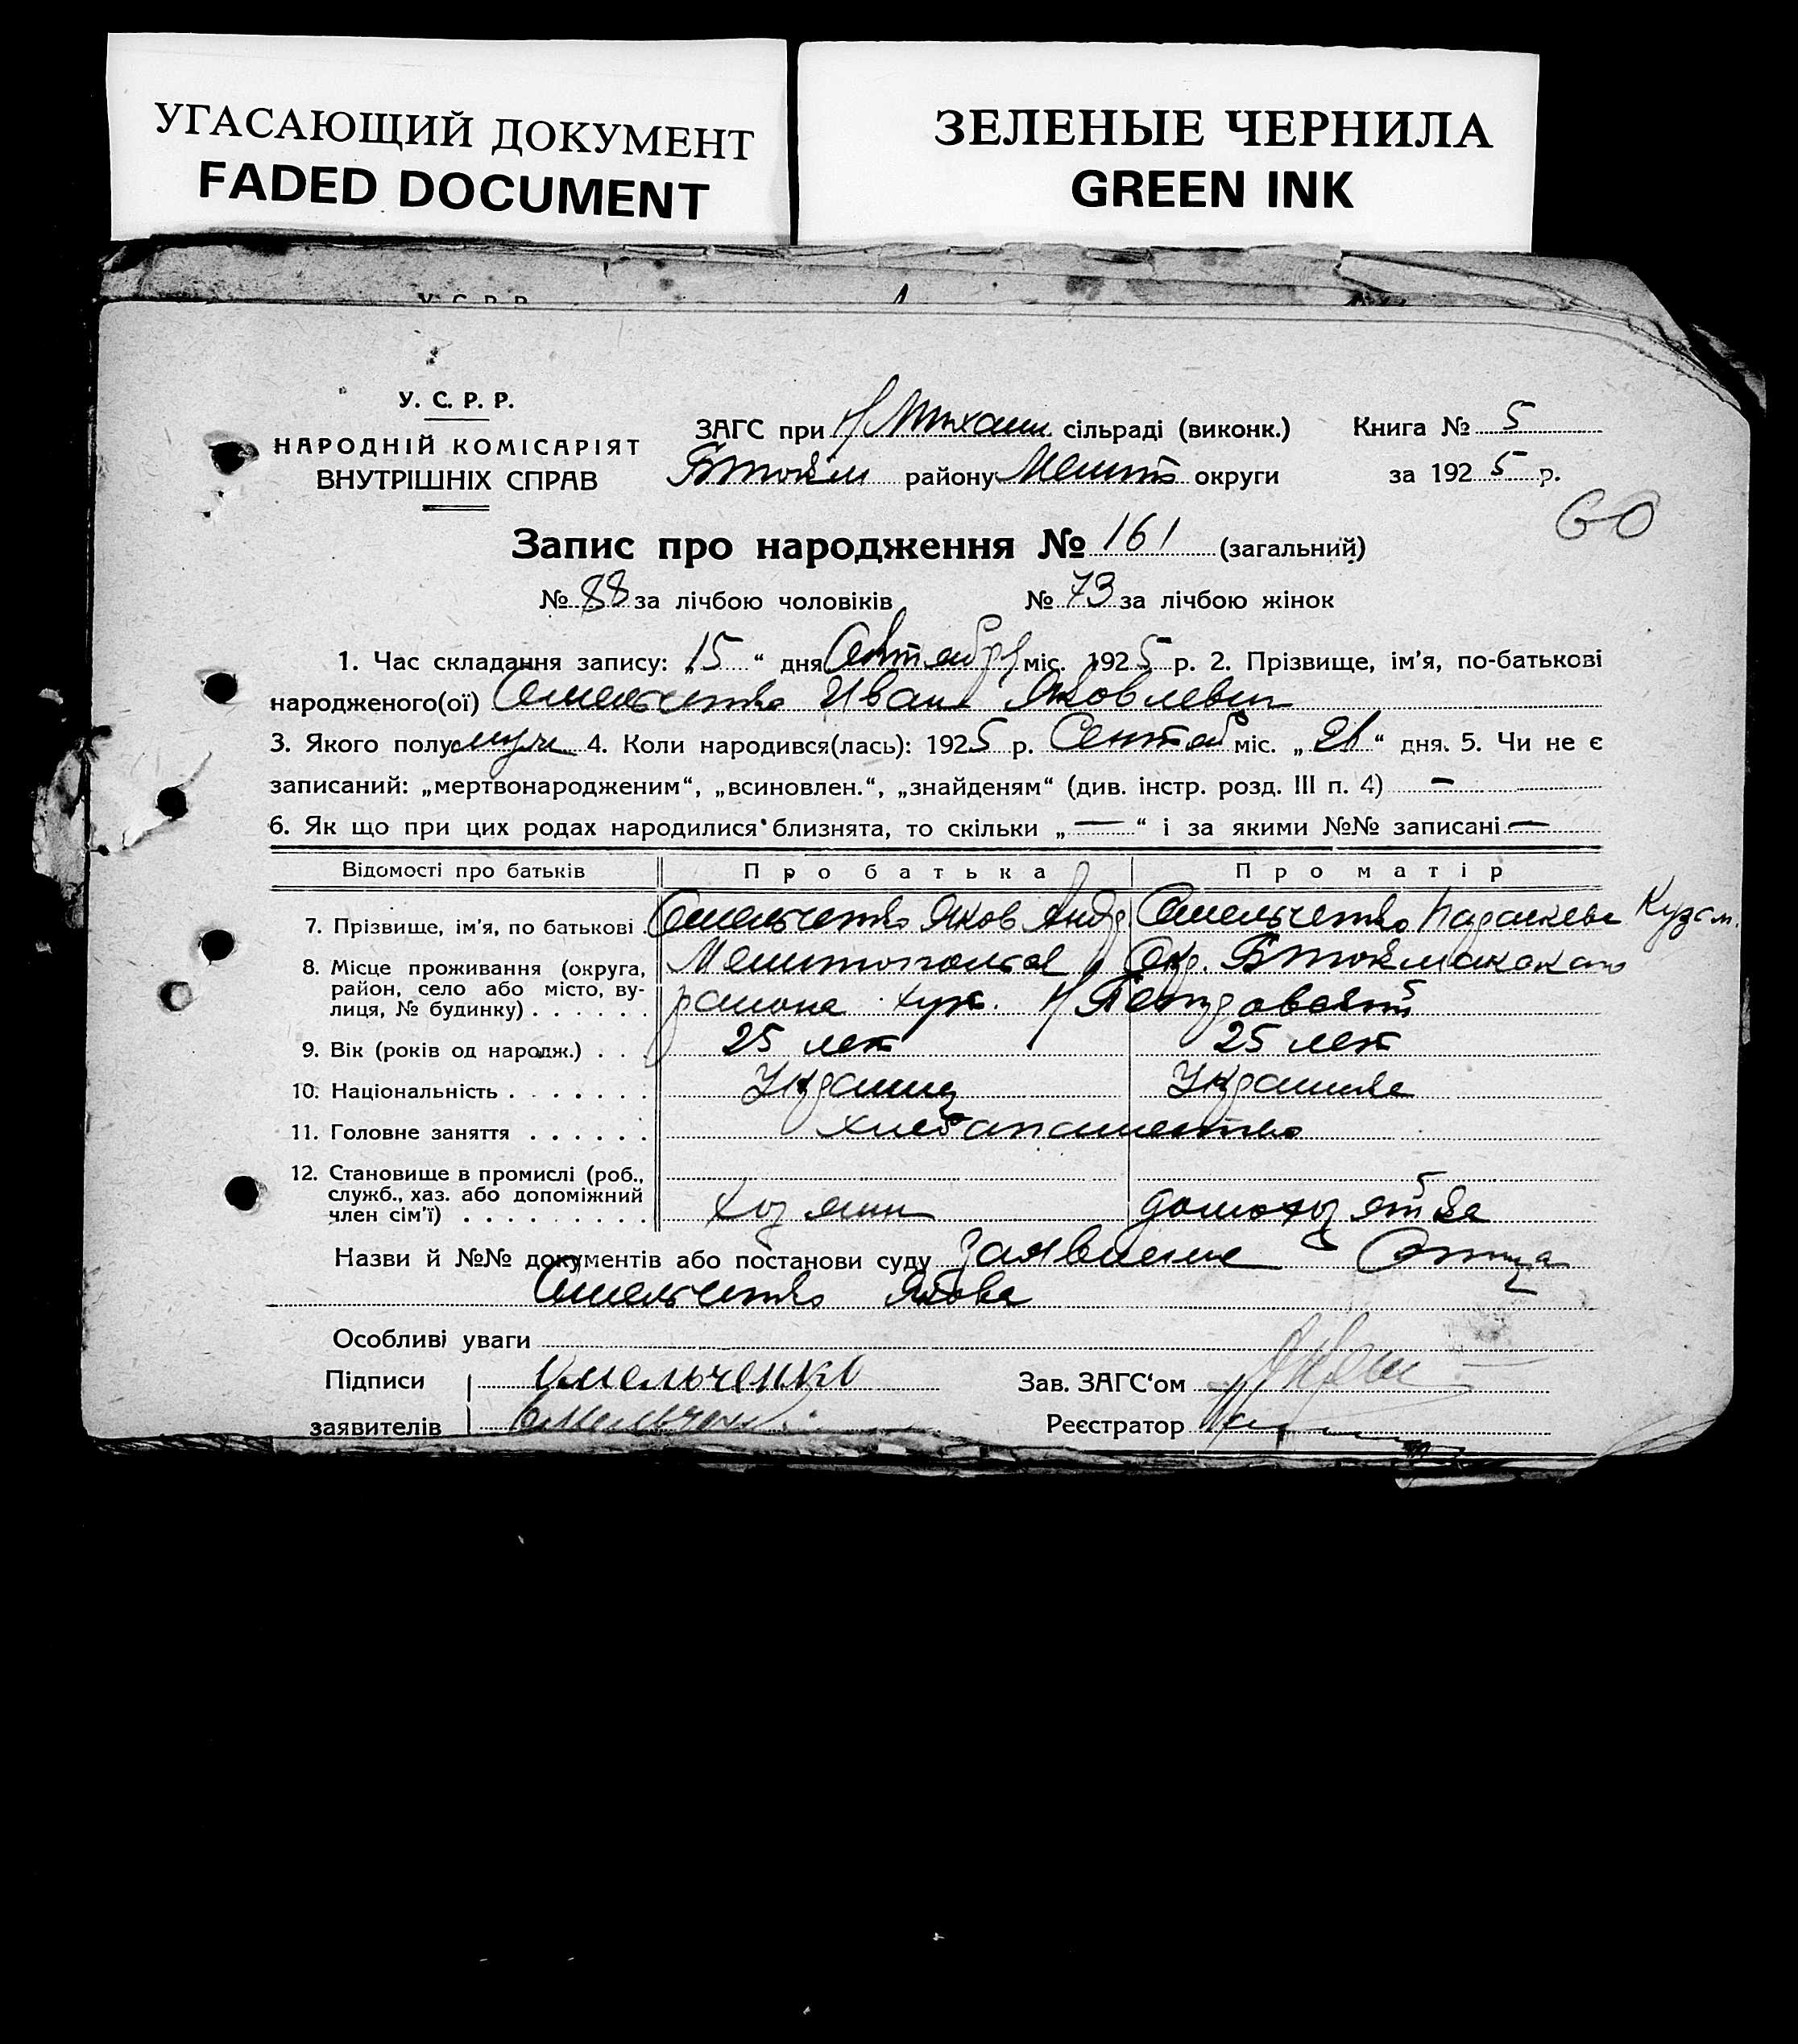 УГАСАЮЩИЙ ДОКУМЕНТ
FADED DOCUMENT
ЗЕЛЕНЫЕ ЧЕРНИЛА
GREEN INK
У. С. Р. Р.
НАРОДНІЙ КОМІСАРІЯТ
ВНУТРІШНІХ СПРАВ
ЗАГС при Н Михаил. сільраді (виконк.)
району Мелит округи
Книга № 5
за 1925 р.
60
Запис про народження № 161 (загальний)
№ 88 за лічбою чоловіків № 73 за лічбою жінок
1. Час складання запису: „15“ дня Октября міс. 1925 р. 2. Прізвище, ім'я, по-батькові
народженого(ої) Омельченко Иван Яковлевич
3. Якого полу муж 4. Коли народився(лась): 1925 р. Сентяб міс. „21“ дня. 5. Чи не є
записаний: „мертвонародженим“, „всиновлен.“, „знайденям“ (див. інстр. розд. III п. 4) —
6. Як що при цих родах народилися близнята, то скільки „—“ і за якими №№ записані —
Відомості про батьків Про батька Про матір
7. Прізвище, ім'я, по батькові Омельченко Яков Андр. Омельченко Параскева Кузьм.
8. Місце проживання (округа, Мелитопольской Окр. Б Токмакскаго
район, село або місто, ву-
лиця, № будинку) района хут. Н
9. Вік (років од народж.) 25 лет 25 лет
10. Національність Украинец Украинка
11. Головне заняття хлебопашество
12. Становище в промислі (роб.,
служб., хаз. або допоміжний
член сім'ї) хозяин домохозяйка
Назви й №№ документів або постанови суду Заявление Отца
Омельченко Якова
Особливі уваги
Підписи Омельченко Зав. ЗАГС'ом
заявителів Омельченко Реєстратор